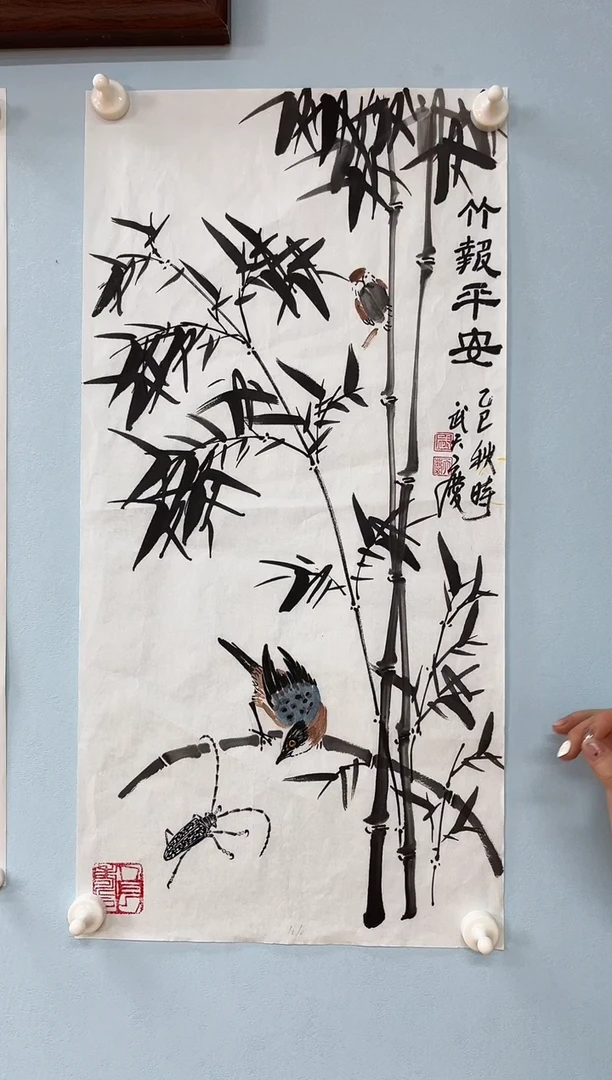 竹報平安
乙巳秋時
武文慶